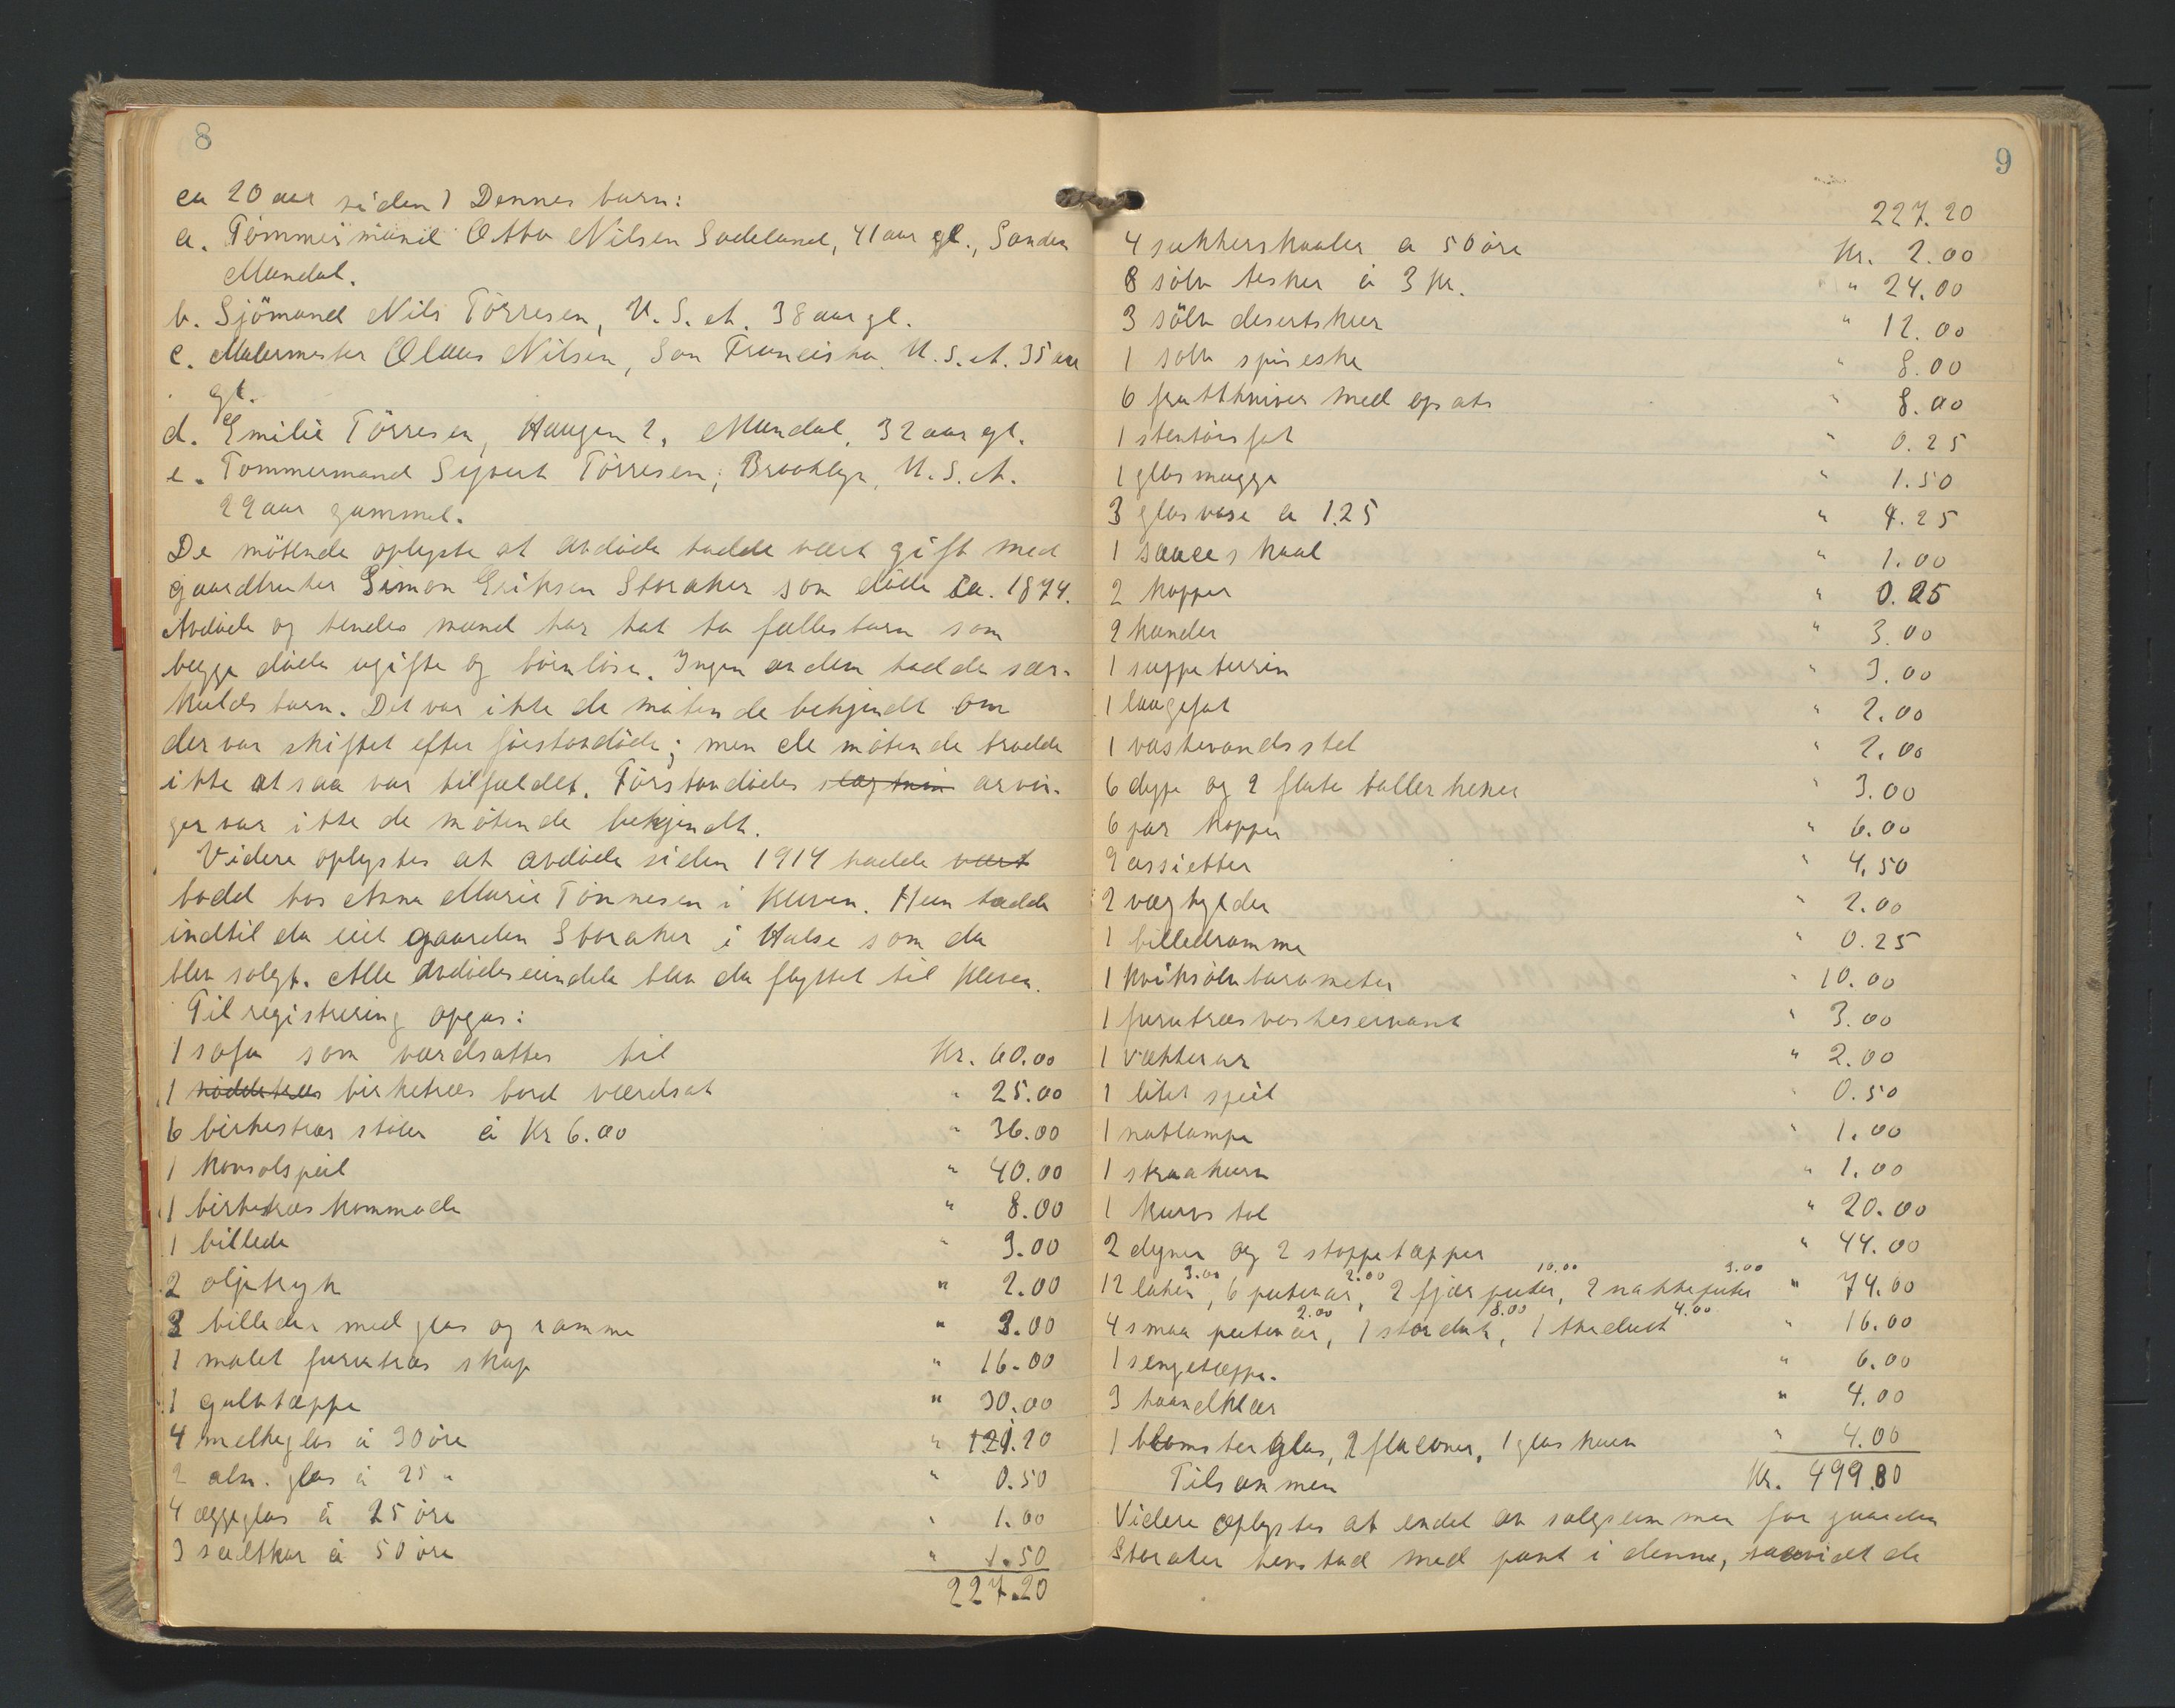 8
ca 20 aar siden) Dennes barn:
a. Tömmermand Otto Nilsen Sodeland, 41 aar gl., Sanden
Mandal.
b. Sjömand Nils Törresen, U. S. A. 38 aar gl.
c. Malermester Olaus Nilsen, San Francisko. U. S. A. 35 aar
gl.
d. Emilie Törresen, Haugen 2, Mandal, 32 aar gl.
e. Tömmermand Syvert Törresen, Brooklyn, U. S. A.
29 aar gammel.
De mötende oplyste at avdöde hadde vært gift med
gaardbruker Simon Eriksen Storaker som döde ca. 1874.
Avdöde og hendes mand har hat to fælles barn som
begge döde ugifte og barnlöse. Ingen av dem hadde sær-
kulds barn. Det var ikke de mötende bekjendt om
der var skiftet efter förstavdöde; men de mötende trodde
ikke at saa var tilfældet. Förstavdödes slegtnin arvin-
ger var ikke de mötende bekjendt.
Videre oplystes at avdöde siden 1914 hadde vært
bodd hos Anna Marie Tönnesen i Kleven. Hun hadde
indtil da eiet gaarden Storaker i Halse som da
blev solgt. Alle avdödes eiendele blev da flyttet til Kleven.
Til registrering opgas:
1 sofa som værdsattes til Kr. 60.00
1 nöddetræs birketræs bord værdsat " 25.00
6 birkestræs stoler à Kr 6.00 " 36.00
1 konsolspeil " 40.00
1 birketræs kommode " 8.00
1 billede " 3.00
2 oljetryk " 2.00
3 billeder med glas og ramme " 3.00
1 malet furutræs skap " 16.00
1 gulvtæppe " 30.00
4 melkeglas à 30 öre " 1.20
2 alm. glas à 25 " " 0.50
4 æggeglas à 25 öre " 1.00
3 saltkar à 50 öre " 1.50
227.20
9
227.20
4 sukkerskaaler a 50 öre Kr. 2.00
8 sölv teskeer à 3 kr. " 24.00
3 sölv desertskeer " 12.00
1 sölv spiseske " 8.00
6 fruktkniver med opsats " 8.00
1 stentöisfat " 0.25
1 glasmugge " 1.50
3 glasvase a 1.25 " 4.25
1 sauceskaal " 1.00
2 kopper " 0.25
2 kander " 3.00
1 suppeterrin " 3.00
1 laugefat " 2.00
1 vaskevandsstel " 2.00
6 dype og 2 flate tallerkener " 3.00
6 par kopper " 6.00
9 assietter " 4.50
2 væghylder " 2.00
1 billedramme " 0.25
1 kviksölvbarometer " 10.00
1 furutræsvaskeservant " 3.00
1 vækkerur " 2.00
1 litet speil " 0.50
1 natlampe " 1.00
1 straakurv " 1.00
1 kurvstol " 20.00
2 dyner og 2 stoppetæpper " 44.00
3.00 2.00 10.00 3.00
12 laken, 6 putevar, 2 fjærputer, 2 nakkeputer " 74.00
2.00 8.00 4.00
4 smaa putevar, 1 stor duk, 1 theduk " 16.00
1 sengetæppe. " 6.00
3 haandklær " 4.00
1 blomsterglas, 2 flaconer, 1 glas " 4.00
Tilsammen Kr. 499.80
Videre oplystes at endel av salgssummen for gaarden
Storaker henstod med pant i denne, saavidt de